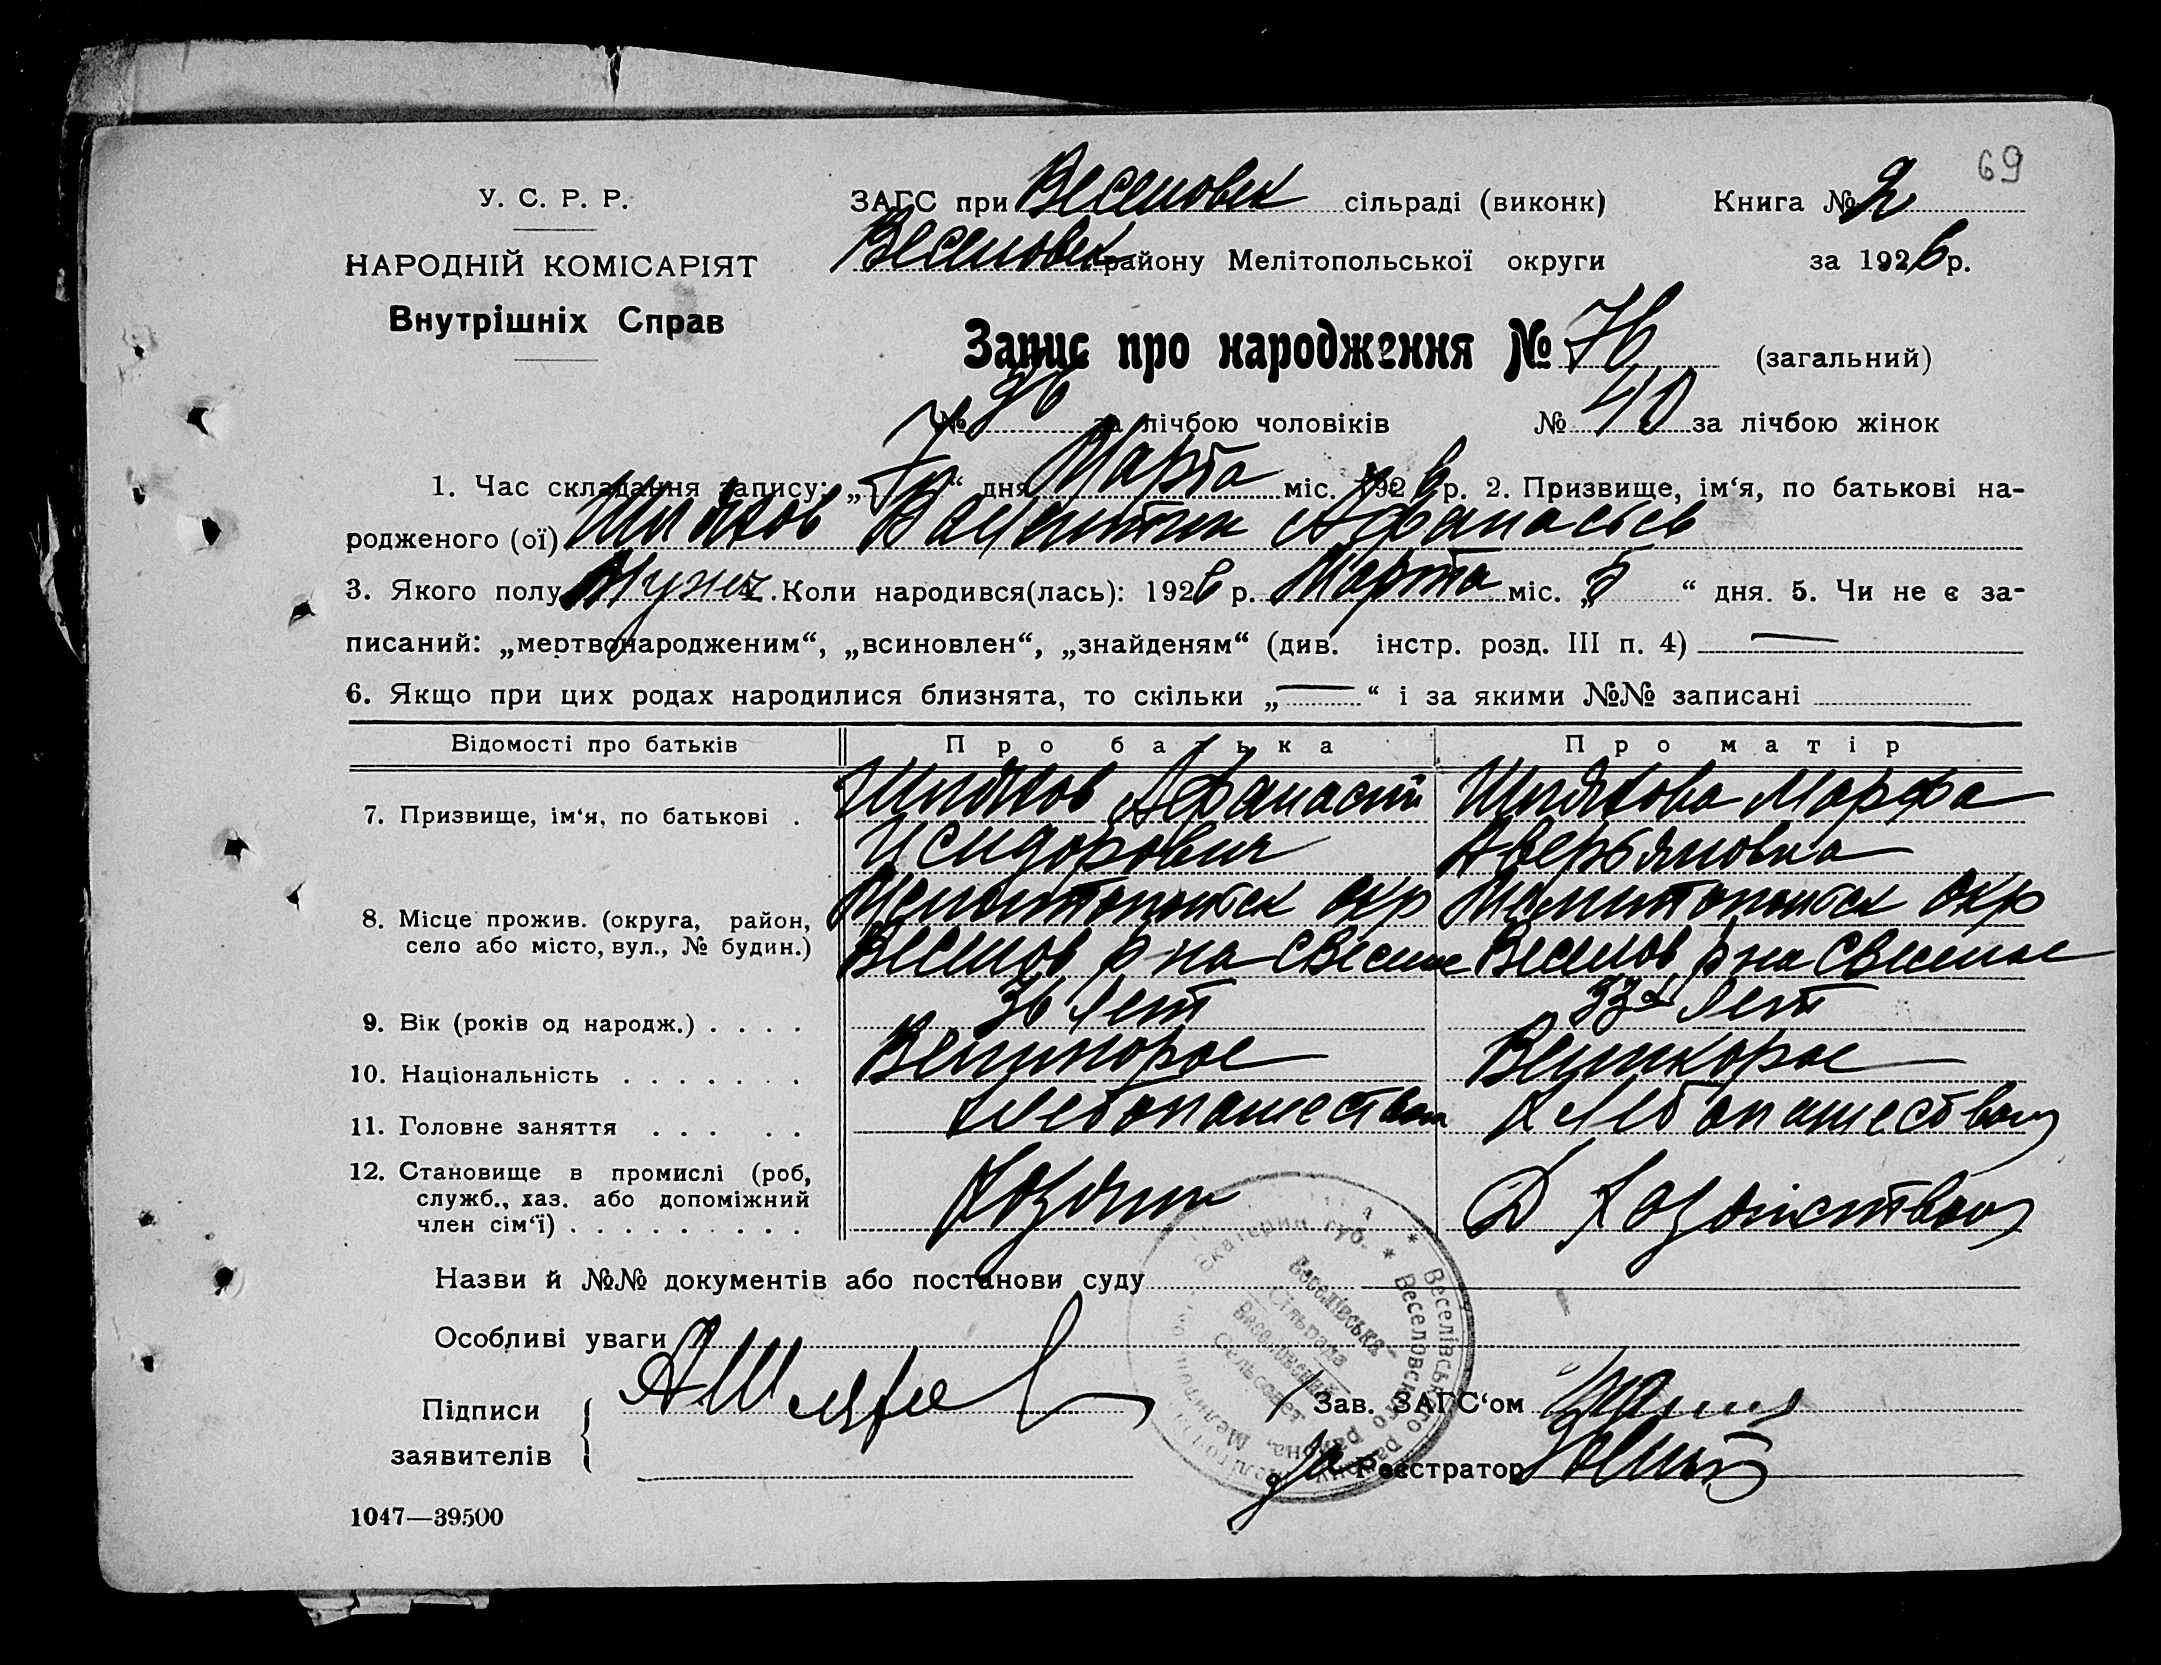 69
У. С. Р. Р.
НАРОДНІЙ КОМІСАРІЯТ
Внутрішніх Справ
ЗАГС при Веселовск сільраді (виконк) Книга № 2
Веселовск району Мелітопольської округи за 1926 р.
Запис про народження № 76 (загальний)
№ 36 за лічбою чоловіків № 40 за лічбою жінок
1. Час складання запису: „ “ дня Марта міс. 1926 р. 2. Призвище, ім‘я, по батькові на-
родженого (ої) Шляхов Валентин Афанасьев
3. Якого полу Мужч 4. Коли народився(лась): 1926 р. Марта міс. „5“ дня. 5. Чи не є за-
писаний: „мертвонародженим“, „всиновлен“, „знайденям“ (див. інстр. розд. III п. 4) —
6. Якщо при цих родах народилися близнята, то скільки „—“ і за якими №№ записані
Відомості про батьків Про батька Про матір
7. Призвище, ім‘я, по батькові . Шляхов Афанасий Шляхова Марфа
Исидорович Аверьяновна
8. Місце прожив. (округа, район, Мелитопольск окр Мелитопольск окр
село або місто, вул., № будин.) Веселов р на с Веселое Веселов р на с Веселое
9. Вік (років од народж.) . . . . 36 лет 33 лет
10. Національність . . . . . . . Великорос Великорос
11. Головне заняття . . . . . Хлебопашеством Хлебопашеством
12. Становище в промислі (роб, Хозяин Д Хозяйством
служб., хаз. або допоміжний
член сім‘ї) . . . . . . . . .
Назви й №№ документів або постанови суду
Особливі уваги
Підписи
заявителів
А Шляхов
Зав. ЗАГС‘ом
Реєстратор
Веселівського району
Веселовского района, Мелитоп
Екатерин губ.
Веселівська
Сільрада
Веселовский
Сельсовет
1047—39500